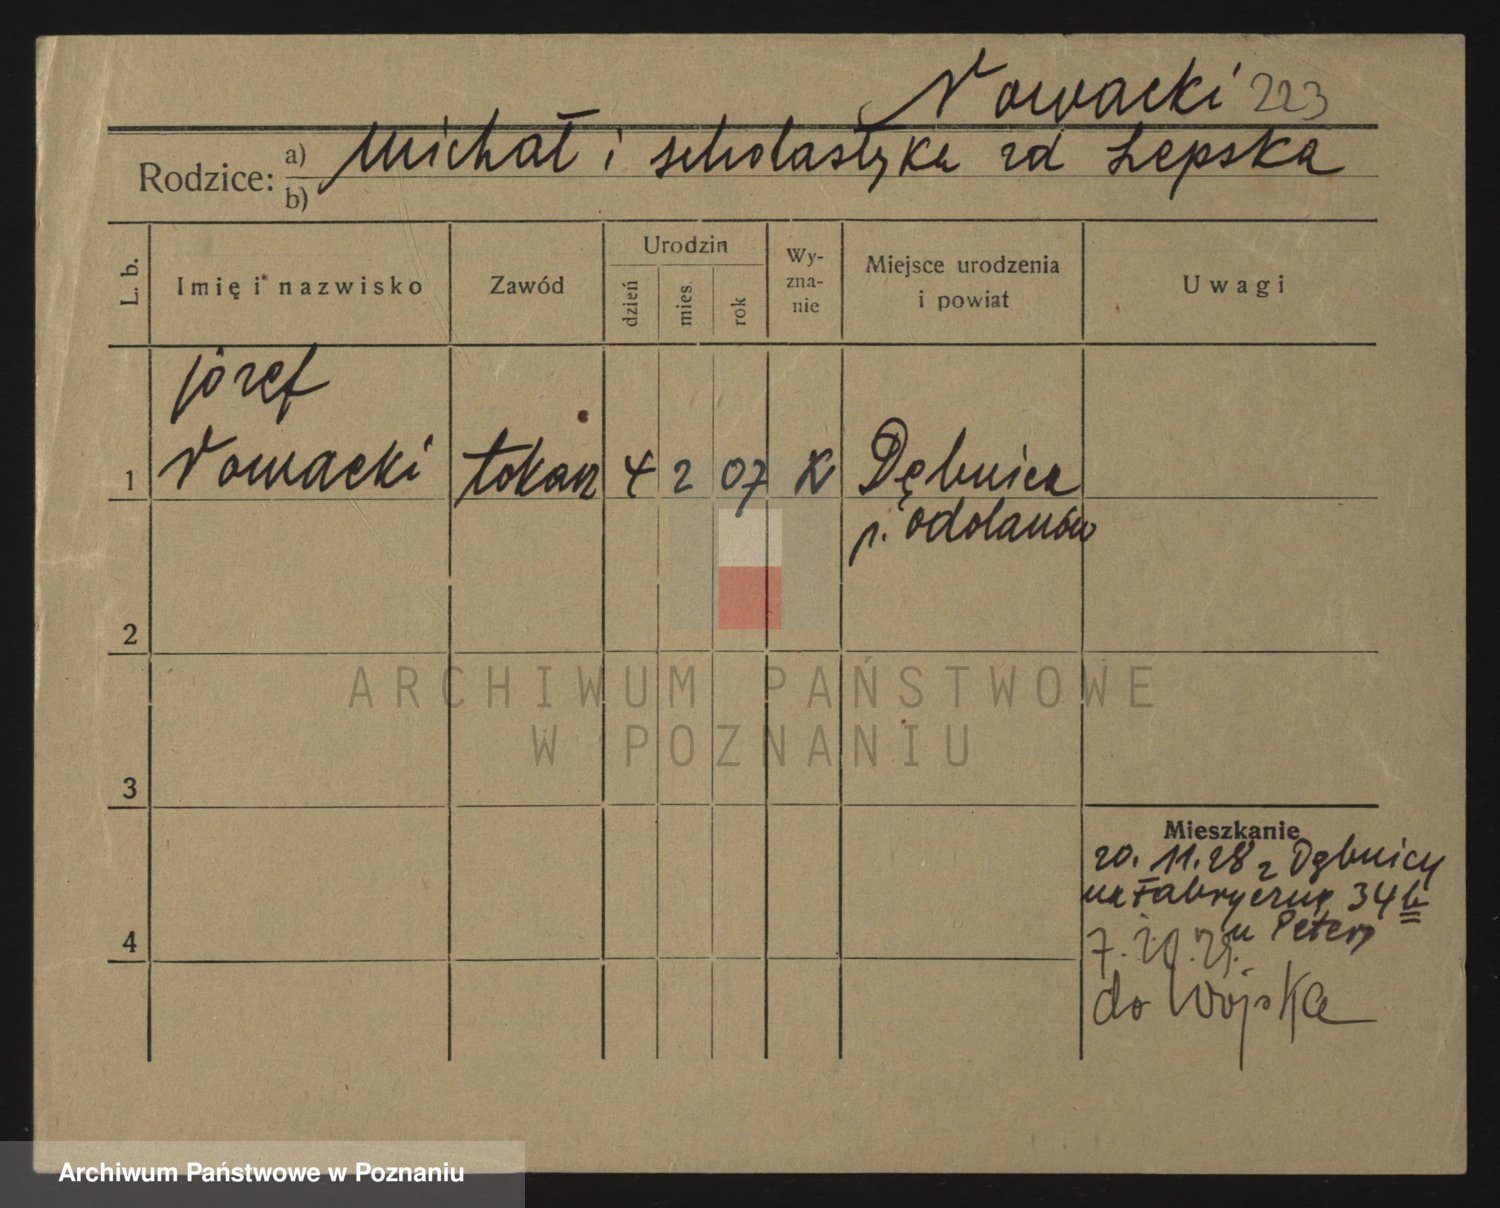 Nowacki 223
Rodzice: a) b) Michał i Scholastyka zd Lepska
L. b.
Imię i nazwisko
Zawód
Urodzin
dzień
mies.
rok
Wy-
zna-
nie
Miejsce urodzenia
i powiat
Uwagi
Józef
1 Nowacki tokarz 4 2 07 K Dębnica
p. Odolanów
2
3
4
Mieszkanie
20. 11. 28 z Dębnicy
na Fabryczną 34 b
u Peters
7. 10. 29.
do Wojska
ARCHIWUM PAŃSTWOWE
W POZNANIU
Archiwum Państwowe w Poznaniu